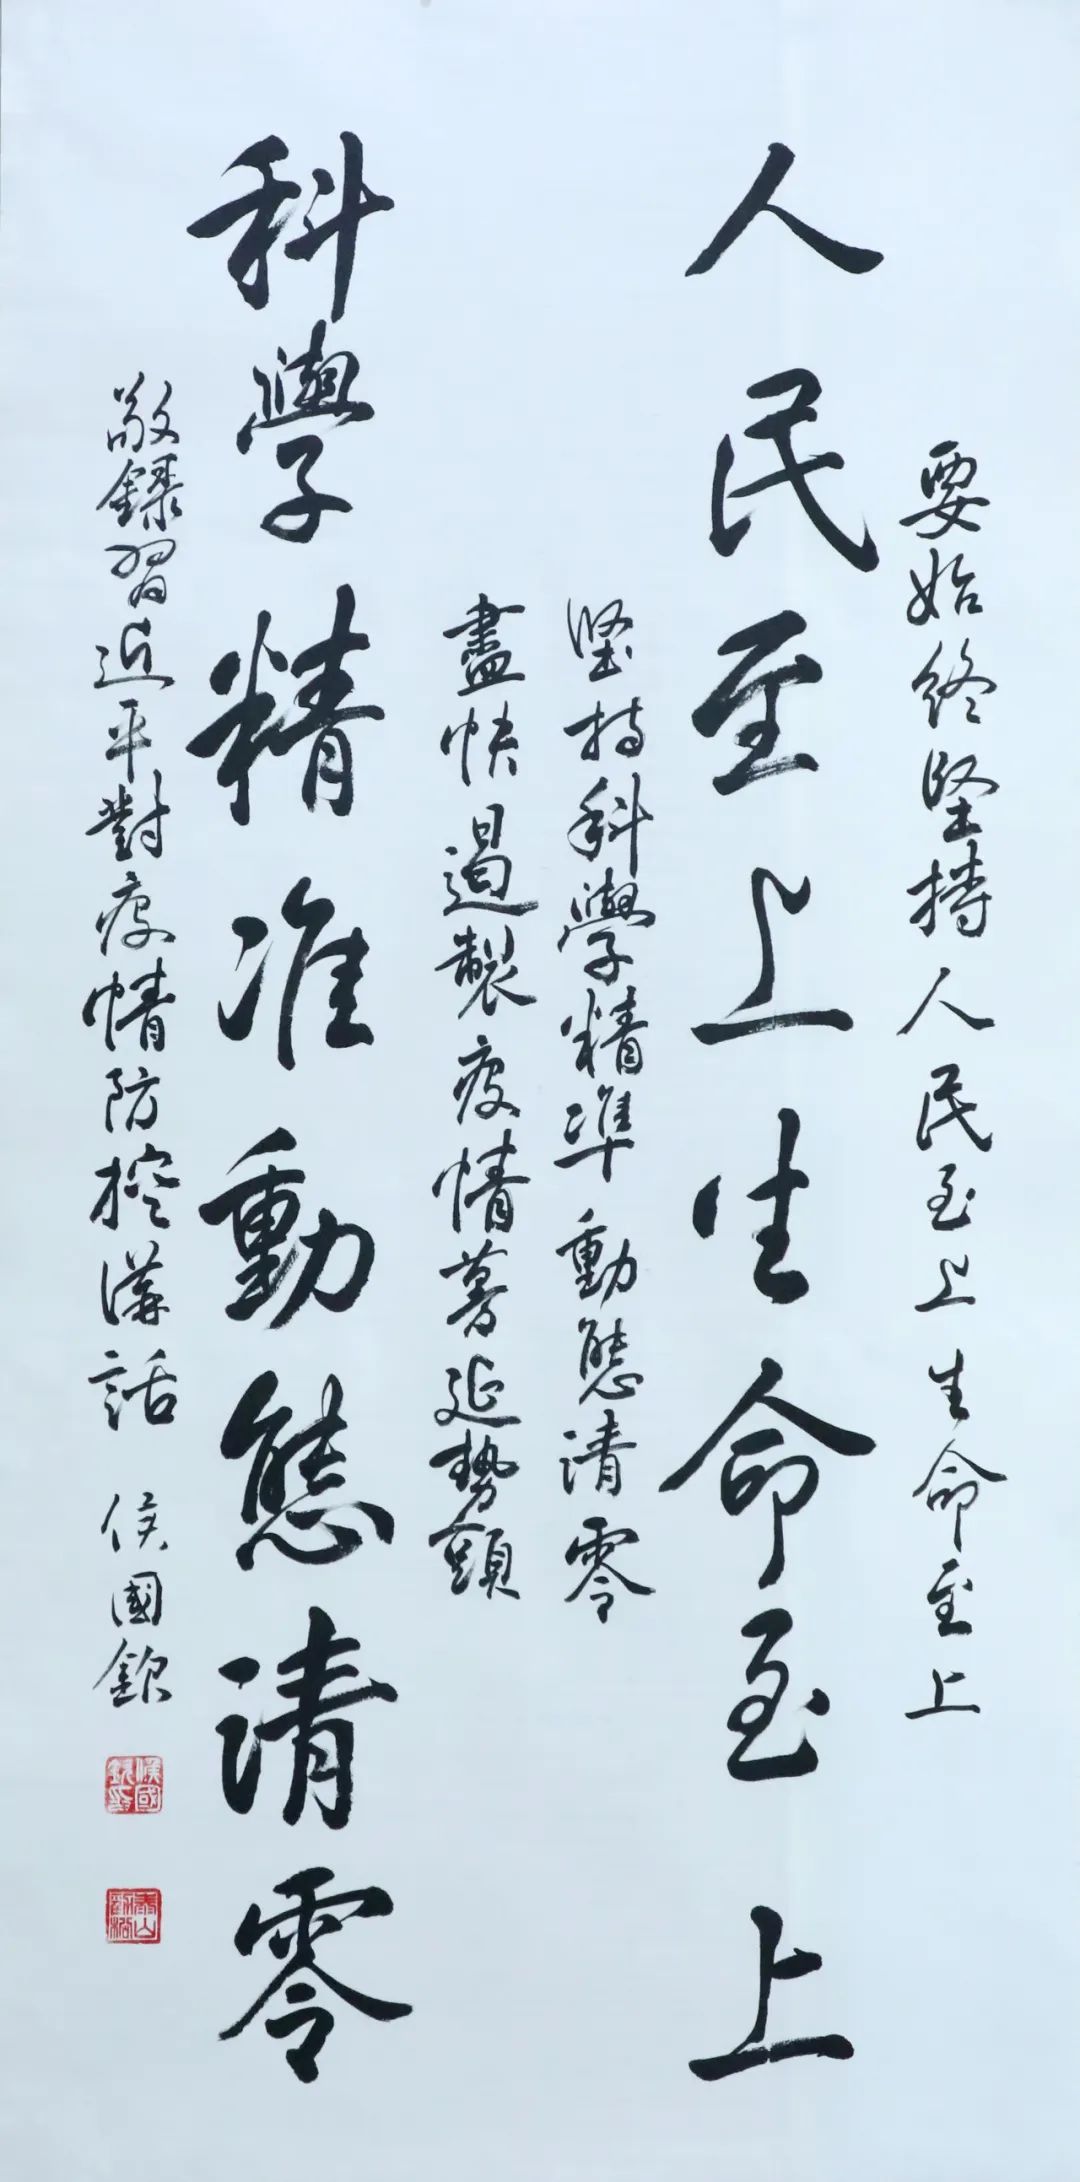 要始終堅持人民至上生命至上
人民至上生命至上
堅持科學精準動態清零
盡快遏製疫情蔓延勢頭
科學精准動態清零
敬錄習近平對疫情防控講話 侯國欽
侯國欽印